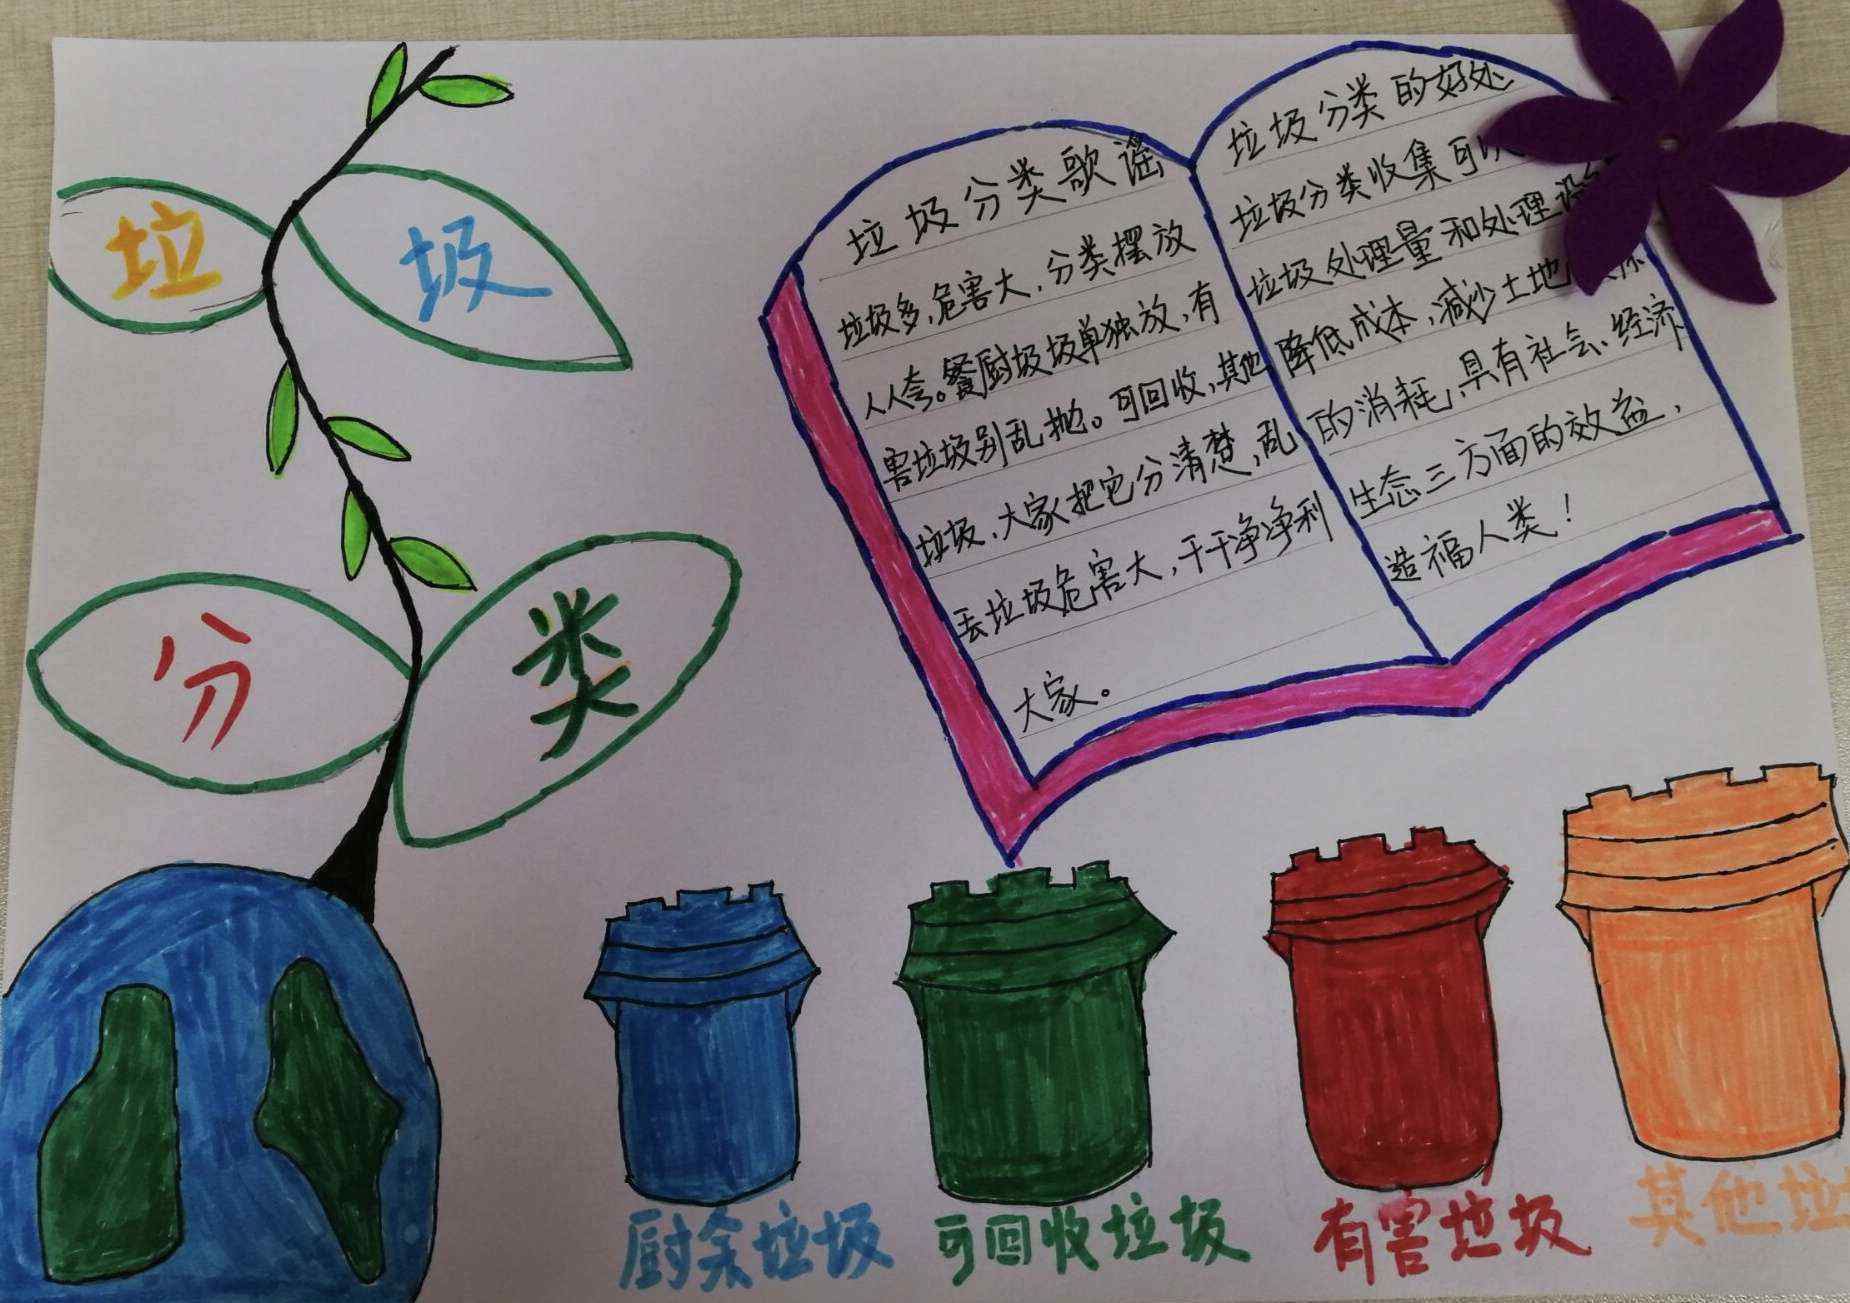 垃圾
分类
垃圾分类歌谣
垃圾多,危害大,分类摆放
人人夸。餐厨垃圾单独放,有
害垃圾别乱抛。可回收,其他
垃圾,大家把它分清楚,乱
丢垃圾危害大,干干净净利
大家。
垃圾分类的好处
垃圾分类收集可以
垃圾处理量和处理设
降低成本,减少土地
的消耗,具有社会、经济
生态三方面的效益,
造福人类!
厨余垃圾
可回收垃圾
有害垃圾
其他垃